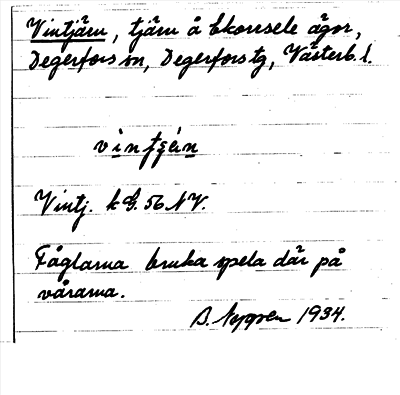 Vintjärn, tjärn å Ekorrsele ägor,
Degerfors sn, Degerfors tg, Västerb. l.
vintʃæ̀n
Vintj. k G. 56 NV.
Fåglarna bruka spela där på
vårarna.
B. Nygren 1934.